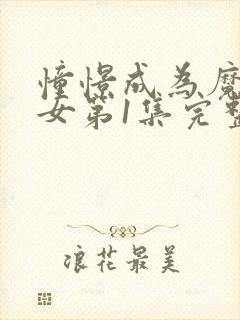 憧憬成為魔
女第1集完整
浪花最美